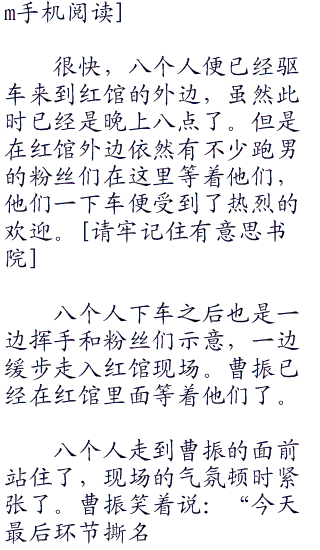 m手机阅读]
很快，八个人便已经驱
车来到红馆的外边，虽然此
时已经是晚上八点了。但是
在红馆外边依然有不少跑男
的粉丝们在这里等着他们，
他们一下车便受到了热烈的
欢迎。[请牢记住有意思书
院]
八个人下车之后也是一
边挥手和粉丝们示意，一边
缓步走入红馆现场。曹振已
经在红馆里面等着他们了。
八个人走到曹振的面前
站住了，现场的气氛顿时紧
张了。曹振笑着说：“今天
最后环节撕名